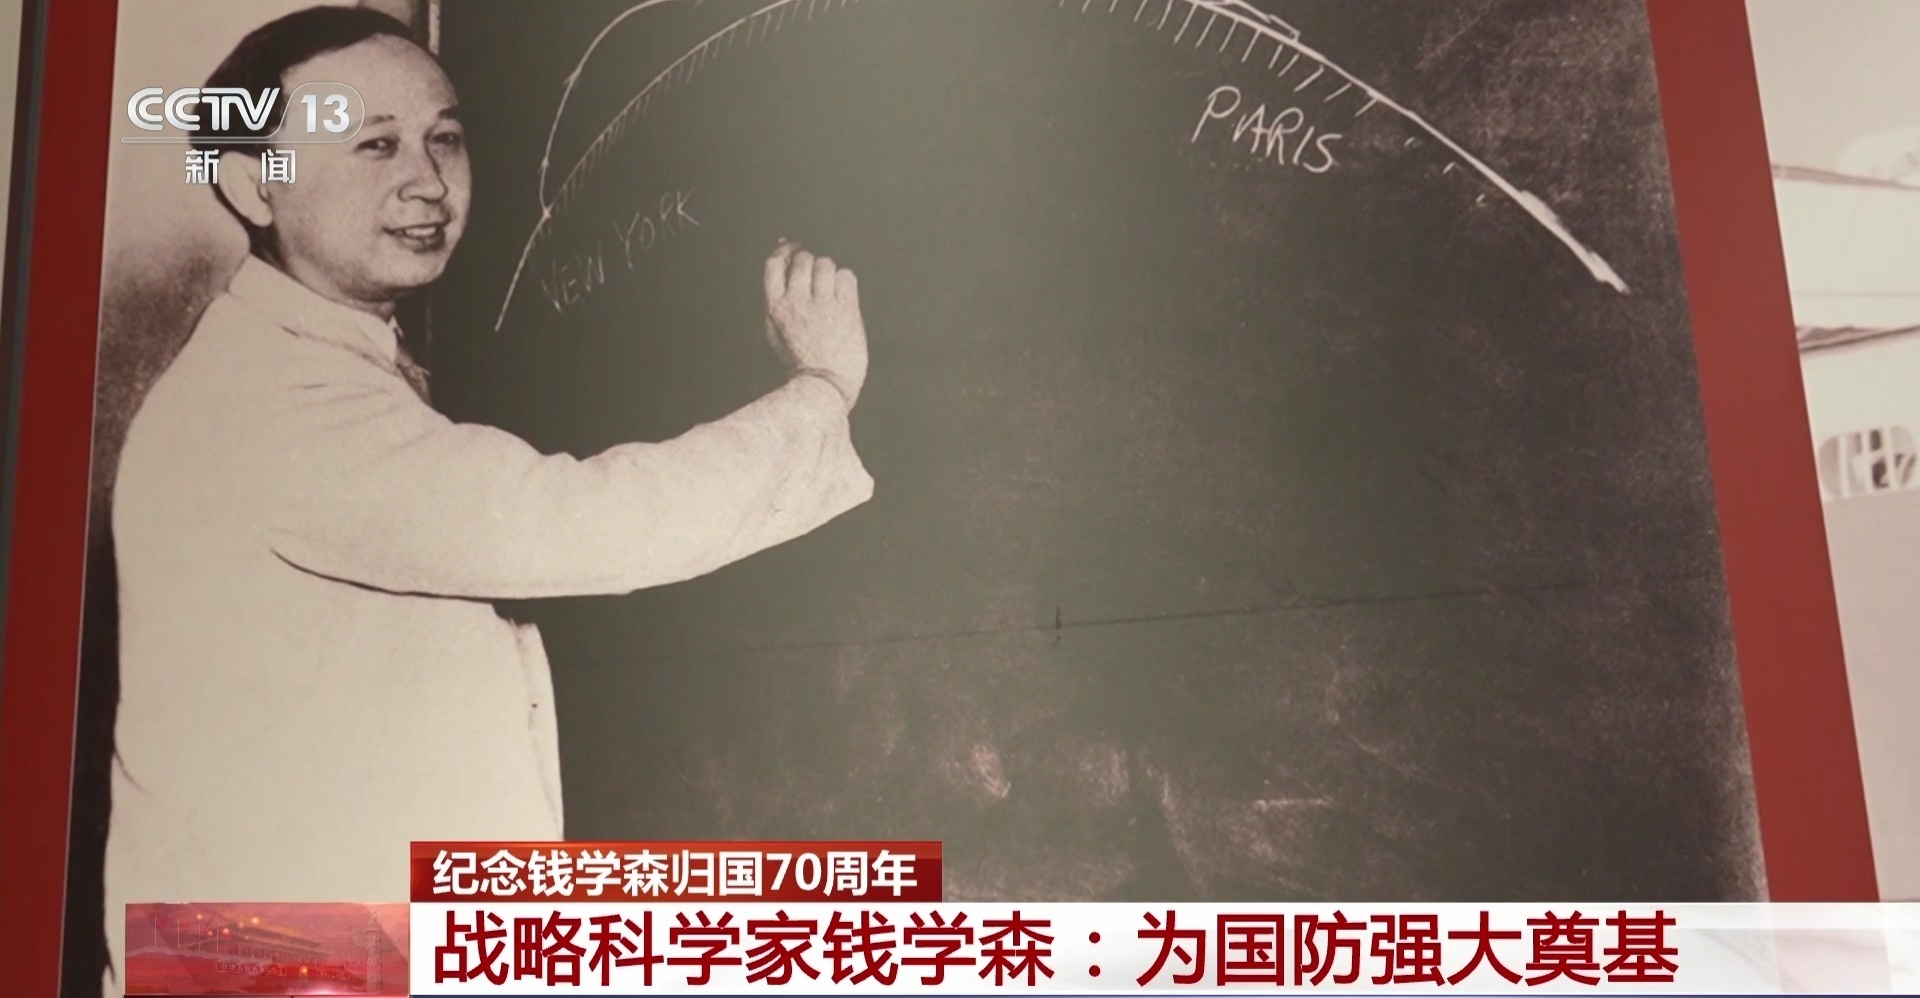 CCTV 13
新闻
PARIS
NEW YORK
纪念钱学森归国70周年
战略科学家钱学森：为国防强大奠基